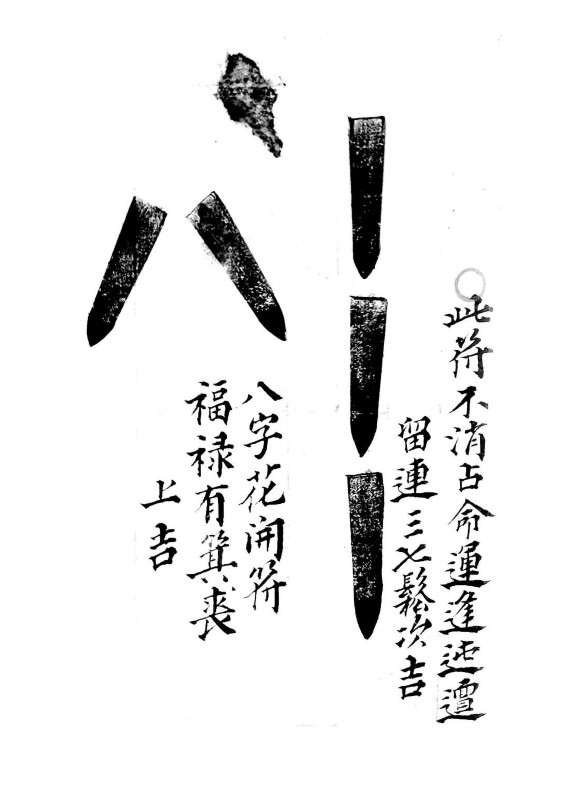 此符不消占命運逢迍邅
留連三七鬆次吉
八字花開符
福禄有箕裘
上吉